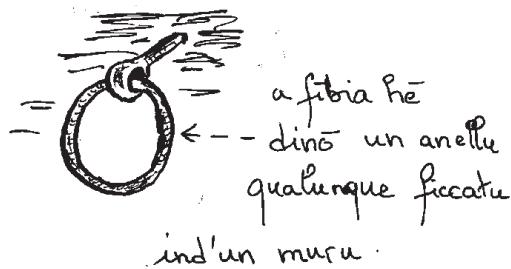 a fibia hē
dinō un anellu
qualunque ficcatu
ind'un muru.